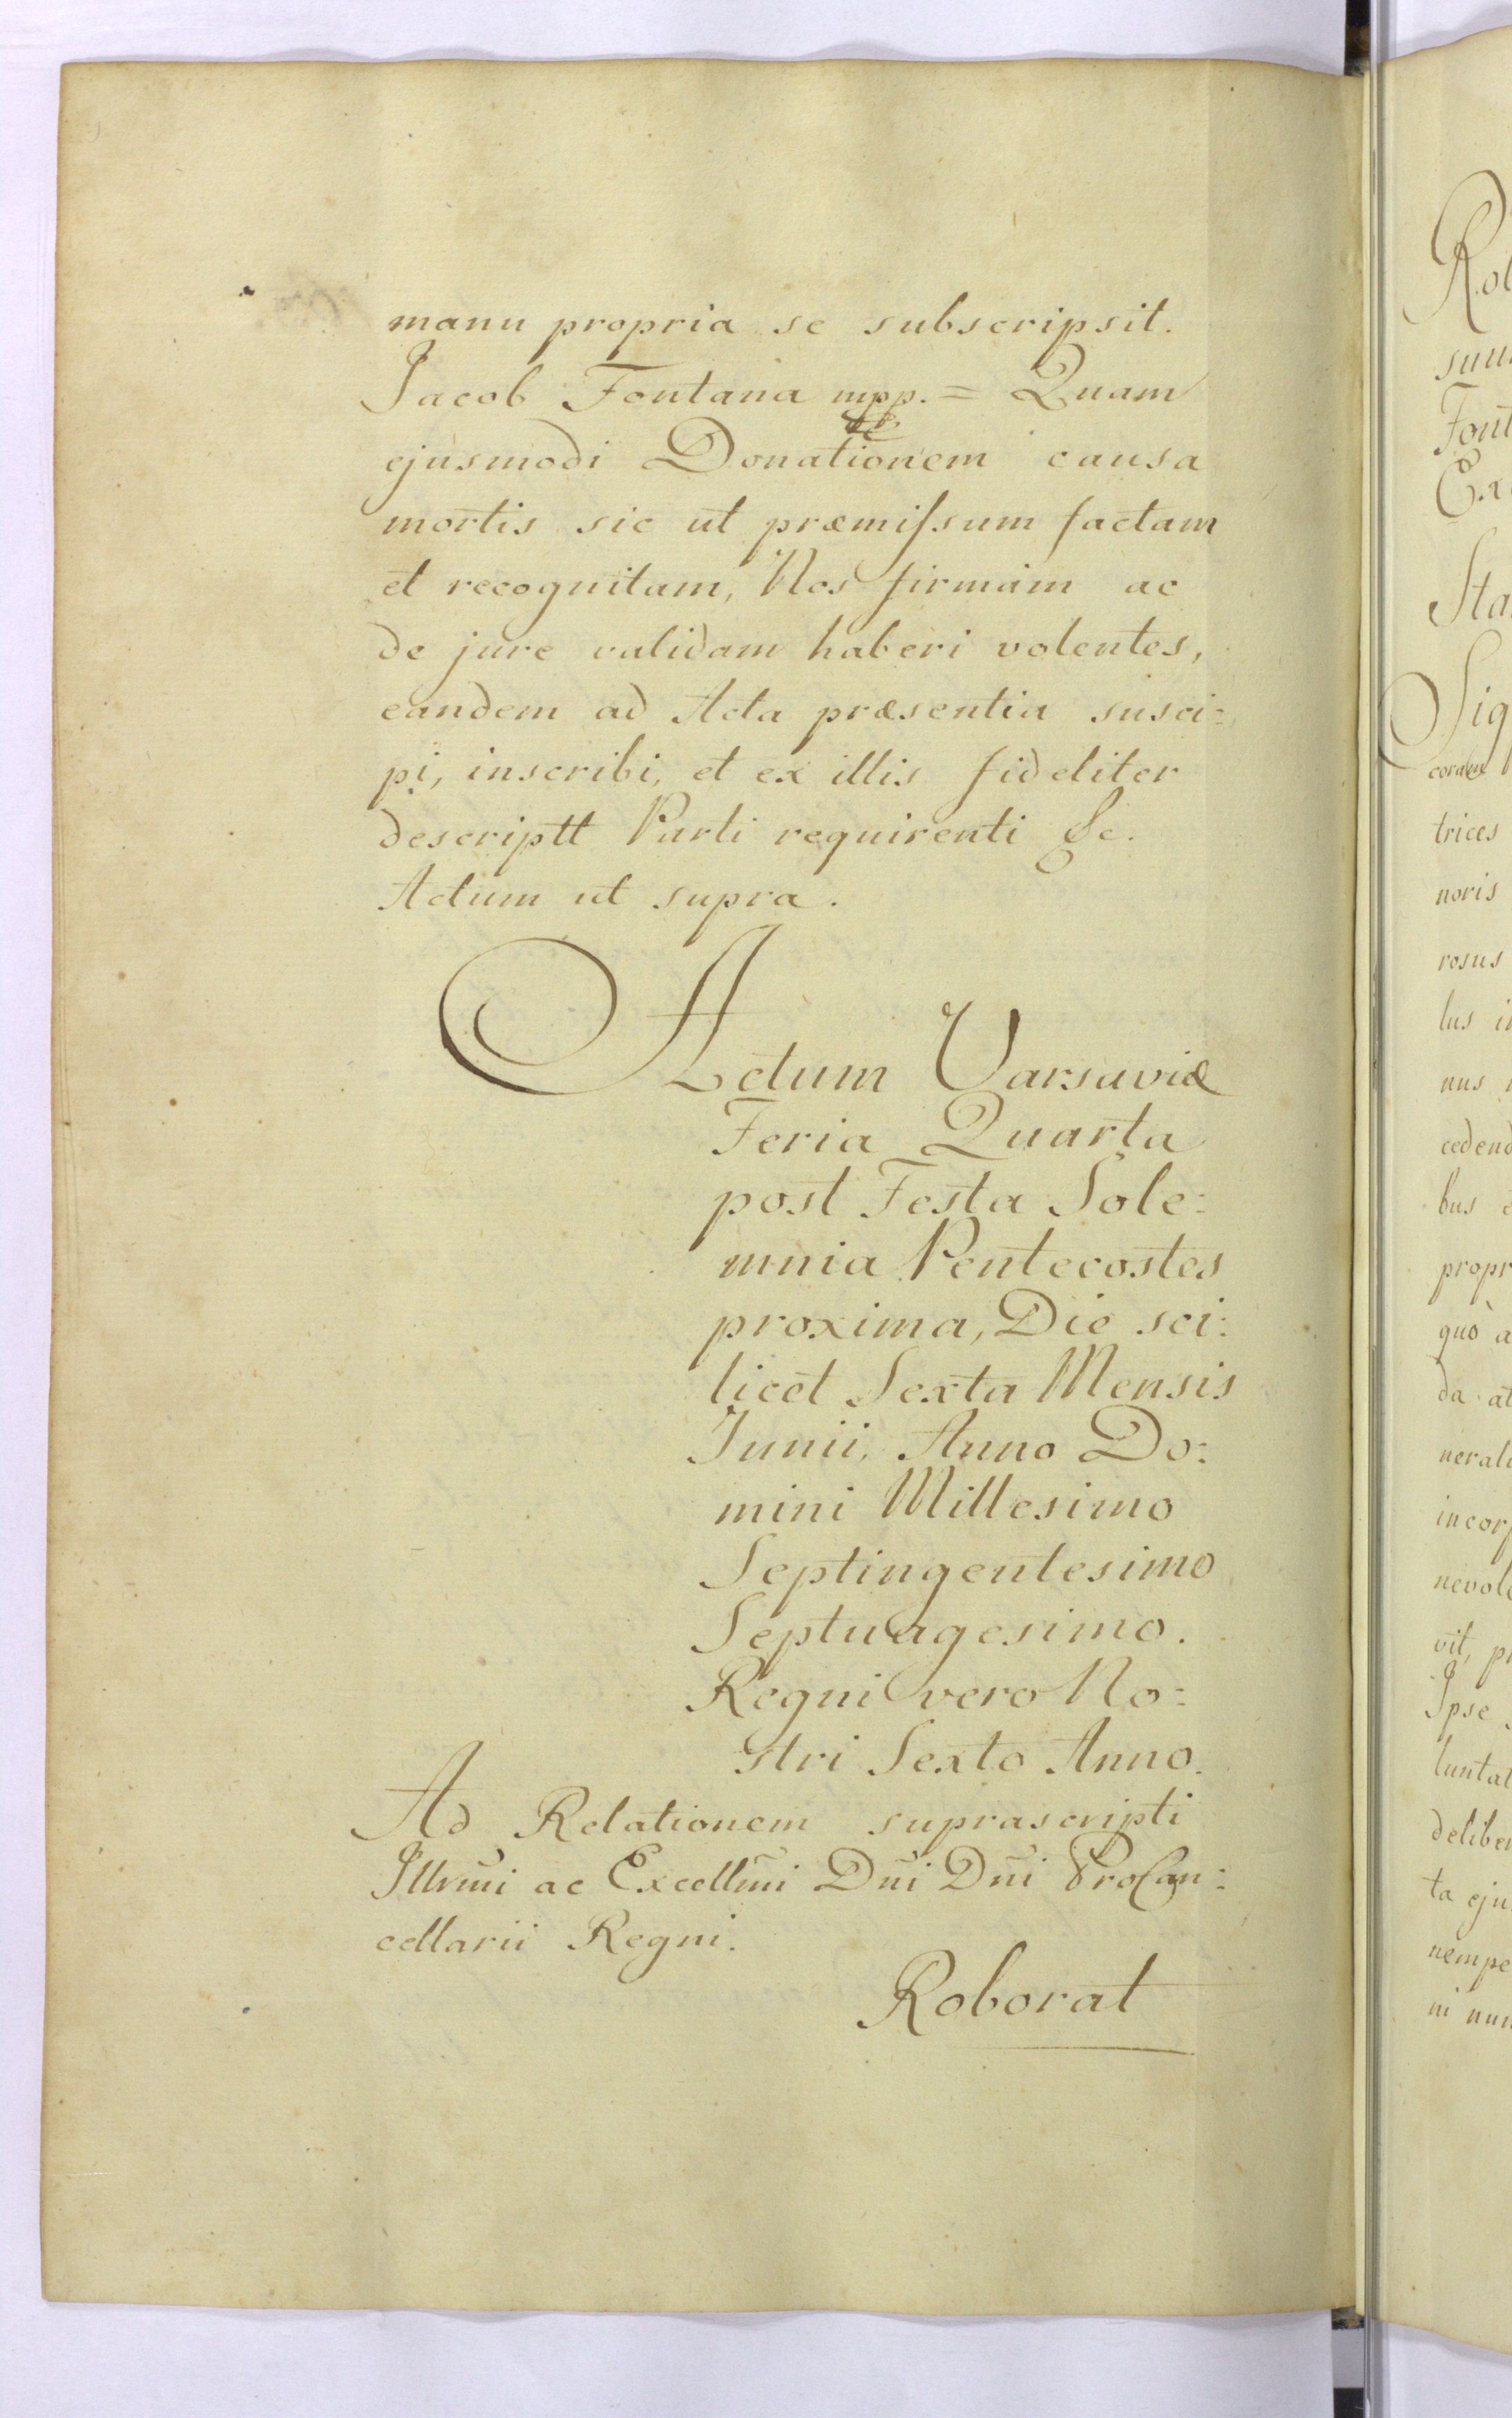 manu propria se subscripsit.
Jacob Fontana mpp. = Quam
ejusmodi Donationem causa
mortis sic ut præmiſsum factam
et recognitam, Nos firmam ac
de jure validam haberi volentes,
eandem ad Acta præsentia susci=
pi, inscribi, et ex illis fideliter
descriptt Parti requirenti &c.
Actum ut supra.
Actum Varsaviæ
Feria Quarta
post Festa Sole=
mnia Pentecostes
proxima, Die sci=
licet Sexta Mensis
Junii, Anno Do=
mini Millesimo
Septingentesimo
Septuagesimo.
Regni vero No=
stri Sexto Anno.
Ad Relationem suprascripti
Illrmi ac Excellmi Dni Dni ProCan=
cellarii Regni.
Roborat
trices
noris
rosus
lus
nus
bus
quò
da
Ipse
ta
nempe